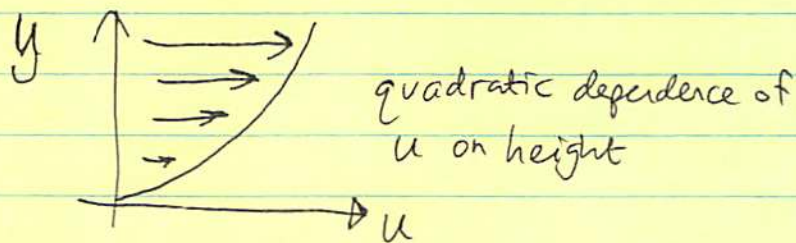 y
quadratic dependence of
u on height
u